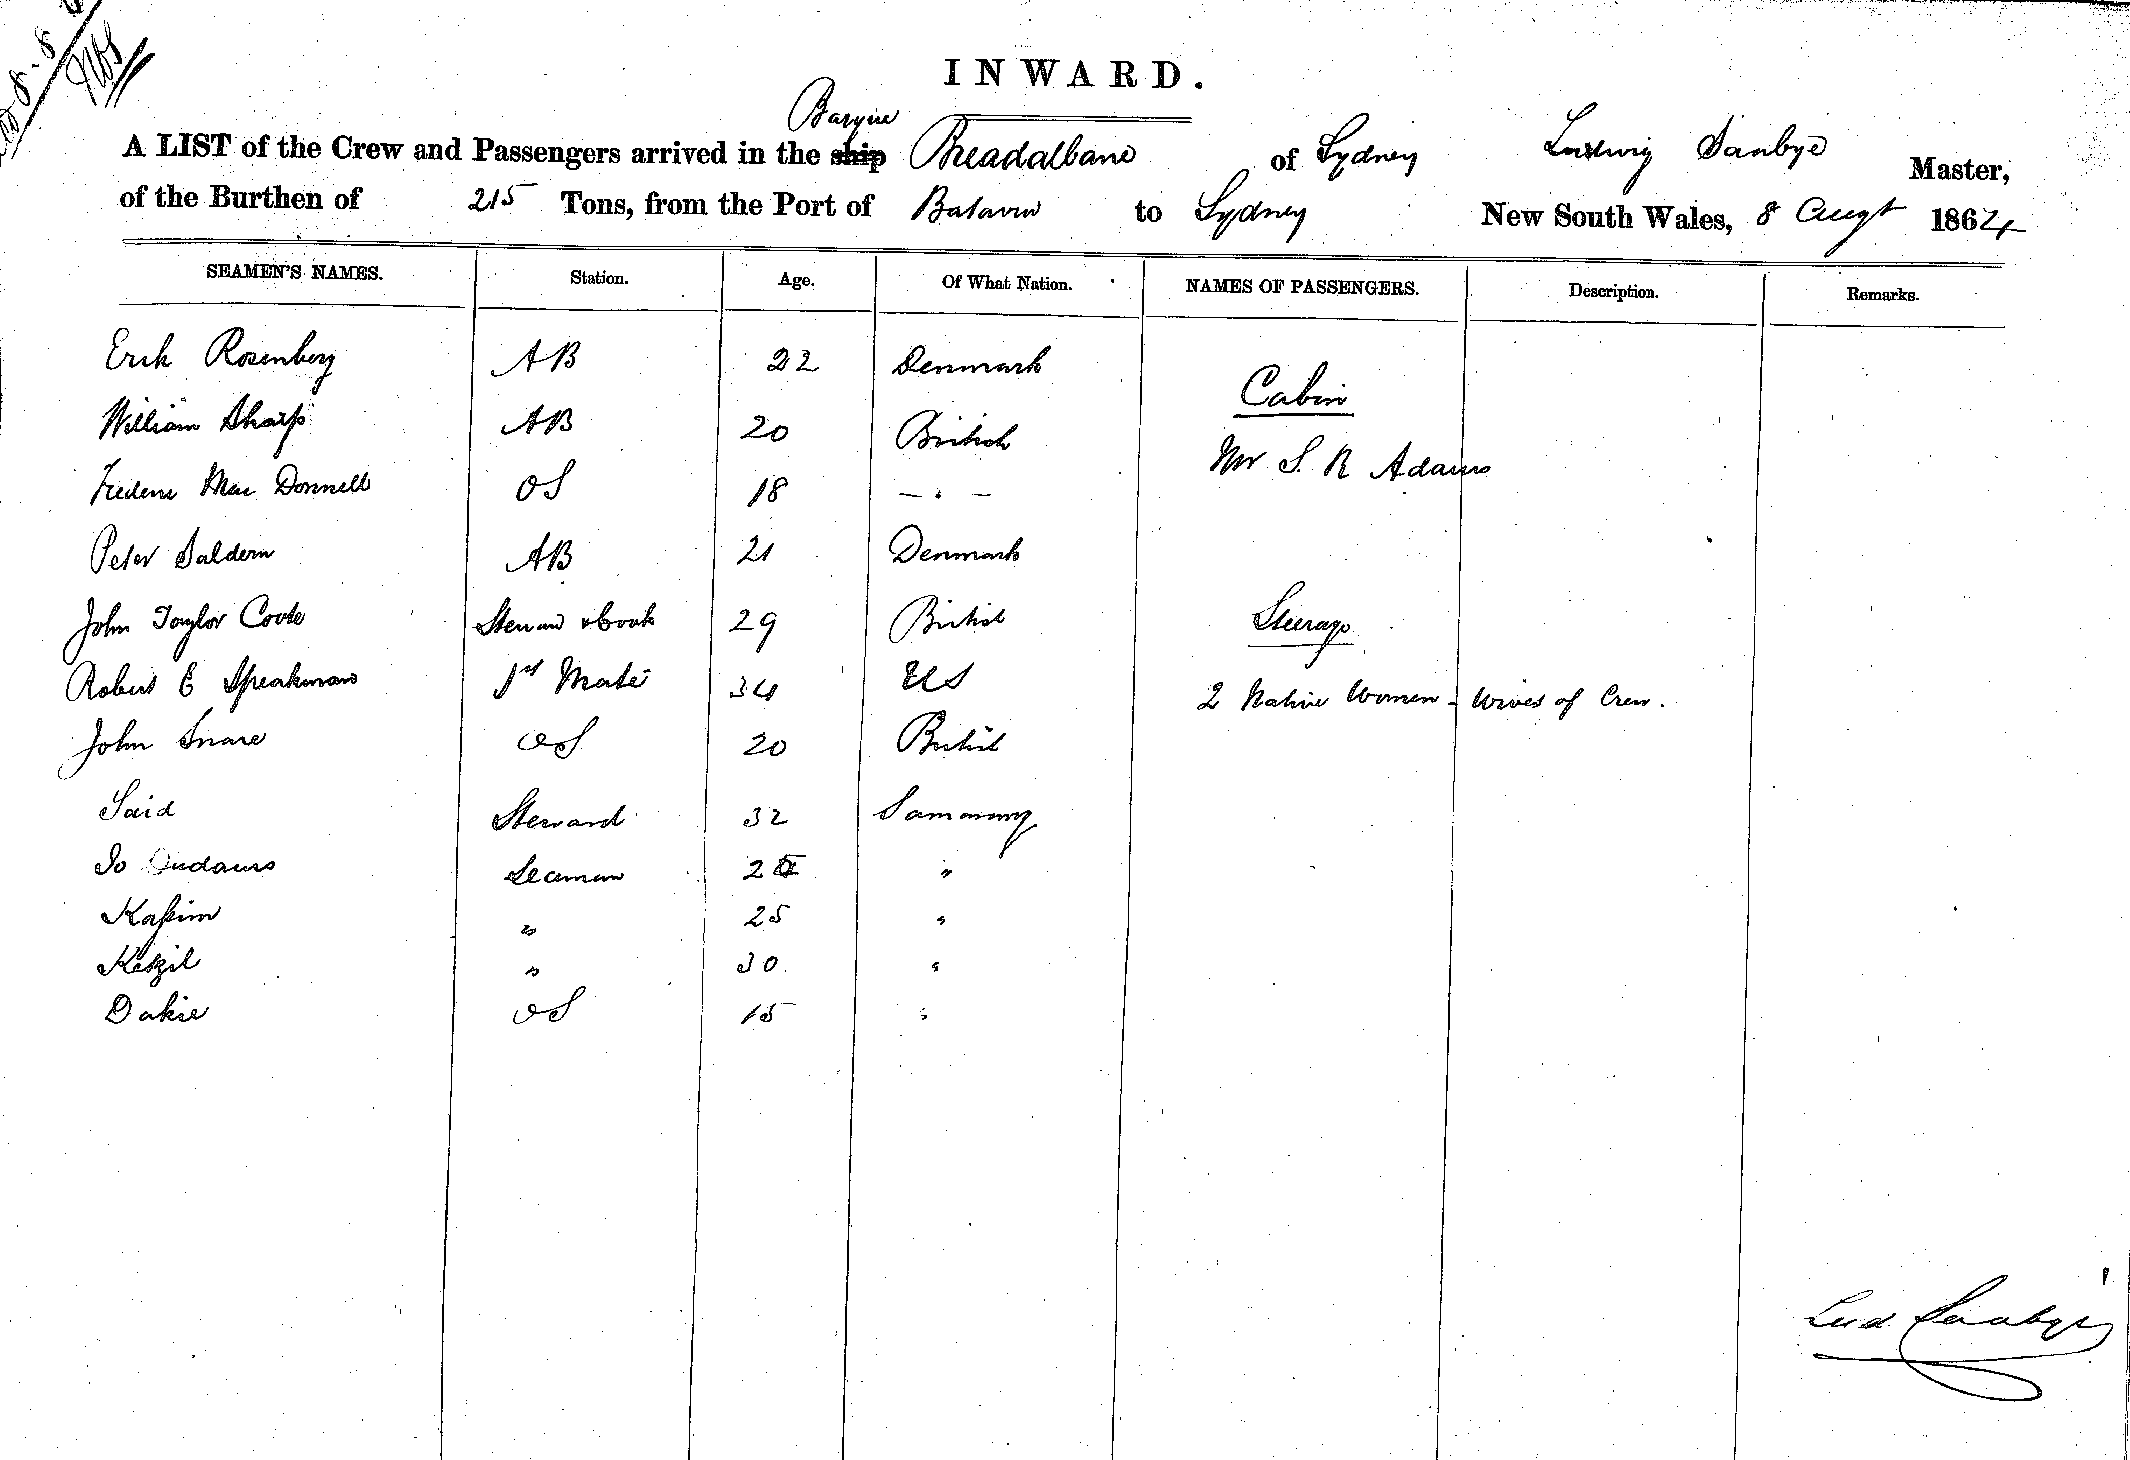 INWARD.
Barque
A LIST of the Crew and Passengers arrived in the ship Breadalbane of Sydney Ludwig Saabye Master,
of the Burthen of 215 Tons, from the Port of Batavia to Sydney New South Wales, 8 Augt 1864
SEAMEN'S NAMES. Station. Age. Of What Nation. NAMES OF PASSENGERS. Description. Remarks.
Erik Rosenberg AB 22 Denmark
Cabin
William Sharp AB 20 British
Mr S. R Adams
Frederic Mac Donnell OS 18 — " —
Peter Saldern AB 21 Denmark
John Taylor Coote Steward & Cook 29 British
Steerage
Robert E Speakman 1st Mate 34 US
2 Native Women - Wives of Crew.
John Snare OS 20 British
Said Steward 32
Seaman "
Kassim " 25 "
" 30 "
Dakie OS 15 "
Lud Saabye